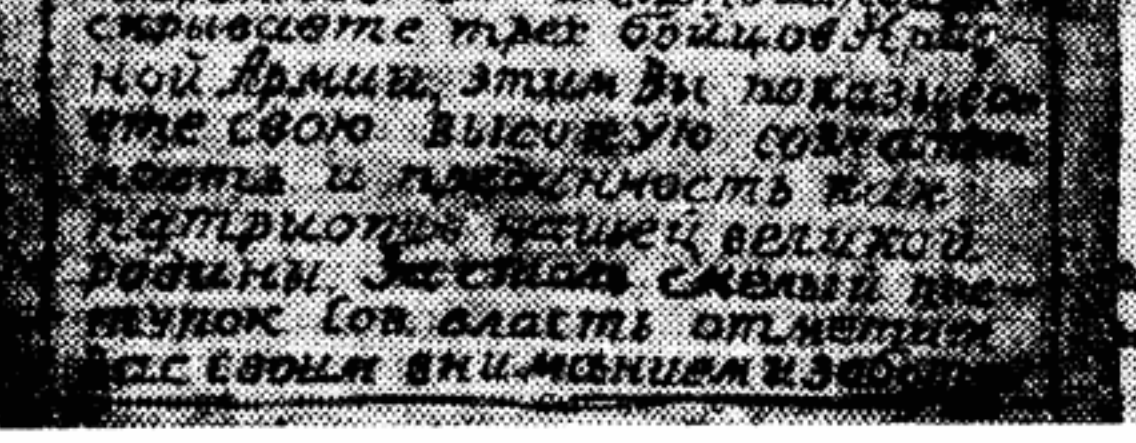 скрываете трех бойцов Крас-
ной Армии, этим Вы показыва-
ете свою высокую сознатель
ность и преданность как
патриоты нашей великой
родины. смелый пос-
тупок Сов власть отметит
Вас своим вниманием и заботой